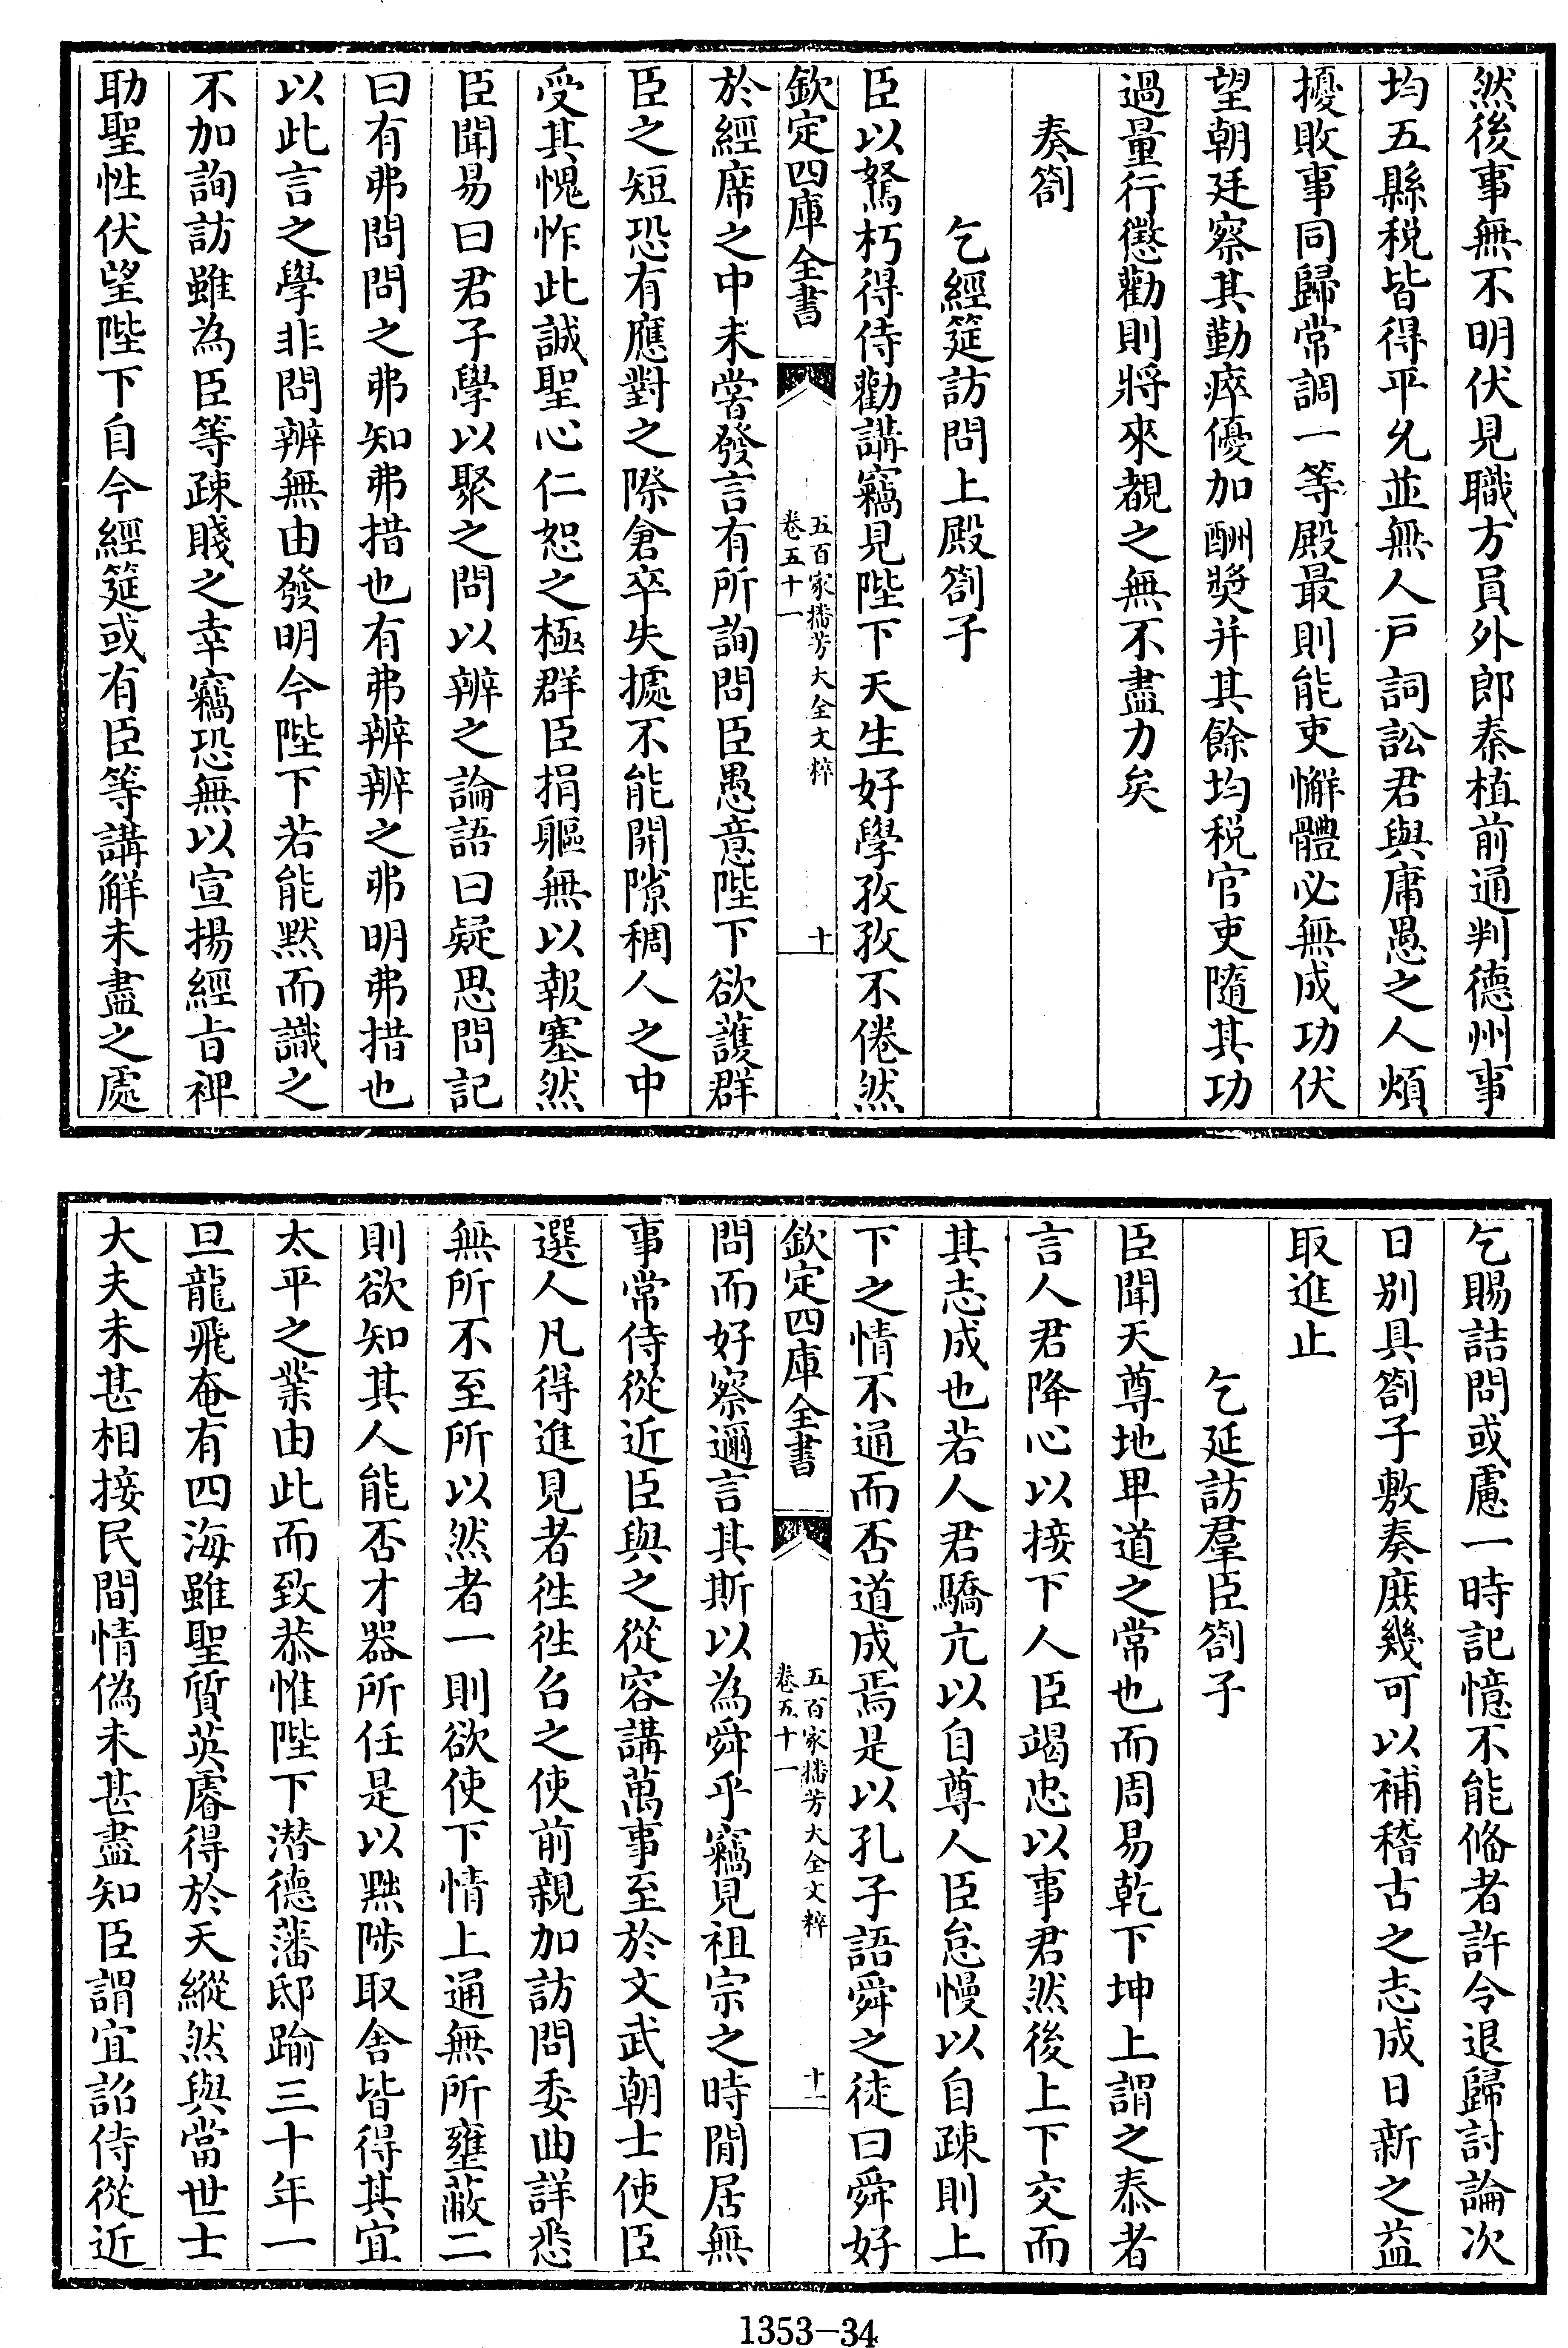 然後事無不明伏見職方員外郎秦植前通判德州事
均五縣税皆得平允並無人戸詞訟君與庸愚之人煩
擾敗事同歸常調一等殿最則能吏懈體必無成功伏
望朝廷察其勤瘁優加酬奬并其餘均税官吏隨其功
過量行懲勸則將來覩之無不盡力矣
奏劄
乞經筵訪問上殿劄子
臣以駑朽得侍勸講竊見陛下天生好學孜孜不倦然
欽定四庫全書
五百家播芳大全文粹
卷五十一
十
於經席之中未嘗發言有所詢問臣愚意陛下欲護群
臣之短恐有應對之際倉卒失據不能開隙稠人之中
受其愧怍此誠聖心仁恕之極群臣捐軀無以報塞然
臣聞易曰君子學以聚之問以辨之論語曰疑思問記
曰有弗問問之弗知弗措也有弗辨辨之弗明弗措也
以此言之學非問辨無由發明今陛下若能黙而識之
不加詢訪雖為臣等疎賤之幸竊恐無以宣揚經㫖裨
助聖性伏望陛下自今經筵或有臣等講解未盡之處
乞賜詰問或慮一時記憶不能俻者許令退歸討論次
日别具劄子敷奏庶幾可以補稽古之志成日新之益
取進止
乞延訪羣臣劄子
臣聞天尊地卑道之常也而周易乾下坤上謂之泰者
言人君降心以接下人臣竭忠以事君然後上下交而
其志成也若人君驕亢以自尊人臣怠慢以自疎則上
下之情不通而否道成焉是以孔子語舜之徒曰舜好
欽定四庫全書
五百家播芳大全文粹
卷五十一
十一
問而好察邇言其斯以為舜乎竊見祖宗之時閒居無
事常侍從近臣與之從容講萬事至於文武朝士使臣
選人凡得進見者徃徃召之使前親加訪問委曲詳悉
無所不至所以然者一則欲使下情上通無所壅蔽二
則欲知其人能否才器所任是以黜陟取舍皆得其宜
太平之業由此而致恭惟陛下潜德藩邸踰三十年一
旦龍飛奄有四海雖聖質英睿得於天縱然與當世士
大夫未甚相接民間情偽未甚盡知臣謂宜詔侍從近
1353-34